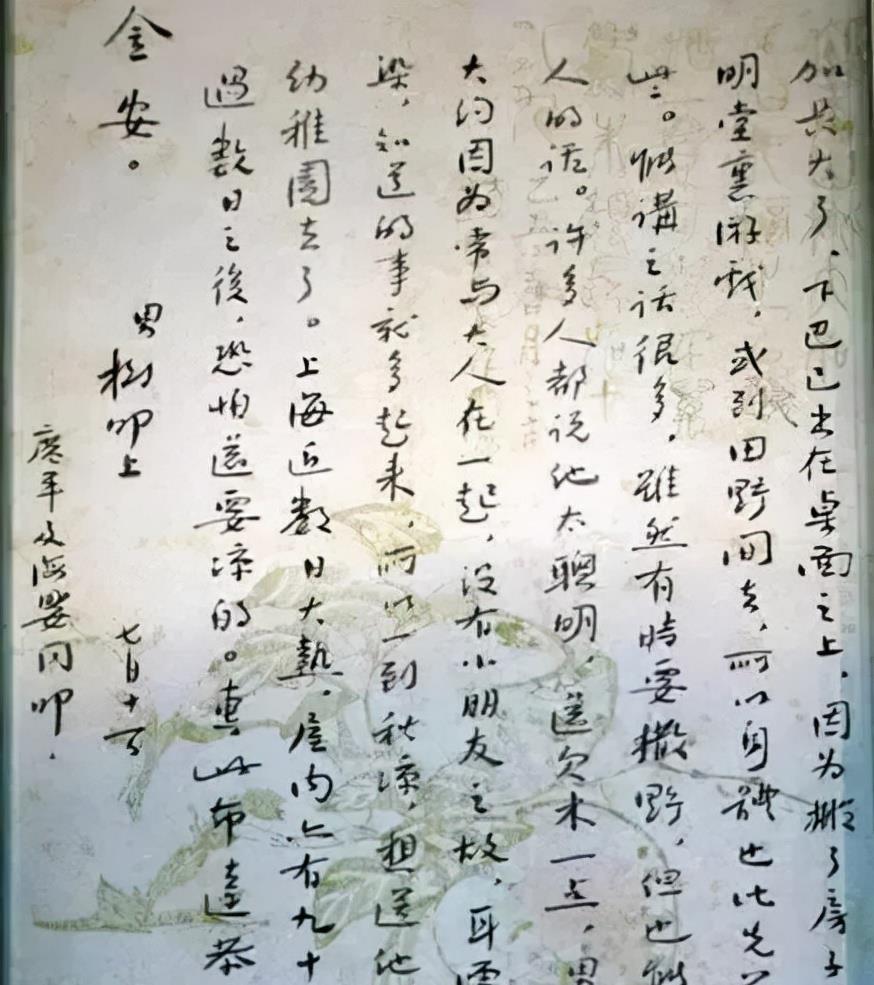 加長大了、下巴已出在桌面之上,因为搬了房子
明堂裏游戏,或到田野间去,所以身體也比先
些。能講之话很多,雖然有時要撒野,但也能
人的话。许多人都说他太聰明,還欠木一点,男
大约因为常与大人在一起,没有小朋友之故,耳濡
染,知道的事就多起来,所以一到秋凉,想送他
幼稚園去了。上海近數日大熱,屋内亦有九十
過數日之後,恐怕還要凉的。專此布達恭
金安。
男樹叩上 七月十一日
廣平及海嬰同叩.